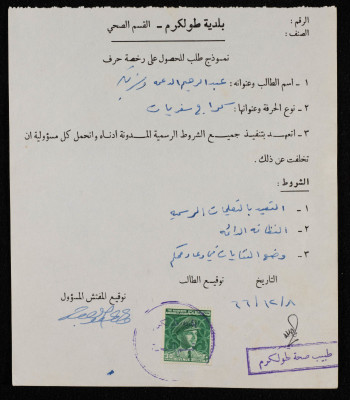 الرقم :
بلدية طولكرم - القسم الصحي
الصنف :
نموذج طلب للحصول على رخصة حرف
١ - اسم الطالب وعنوانه : عبد الرحيم
٢ - نوع الحرفة وعنوانها :
٣ - اتعهد بتنفيذ جميع الشروط الرسمية المدونة ادناه واتحمل كل مسؤولية ان
تخلفت عن ذلك .
الشروط :
١ - التقيد بالتعليمات الرسمية
٢ - النظافة الدائمة
٣ - وضع النفايات في وعاء محكم
التاريخ
توقيع الطالب
توقيع المفتش المسؤول
٦٦/١٢/٨
طبيب صحة طولكرم